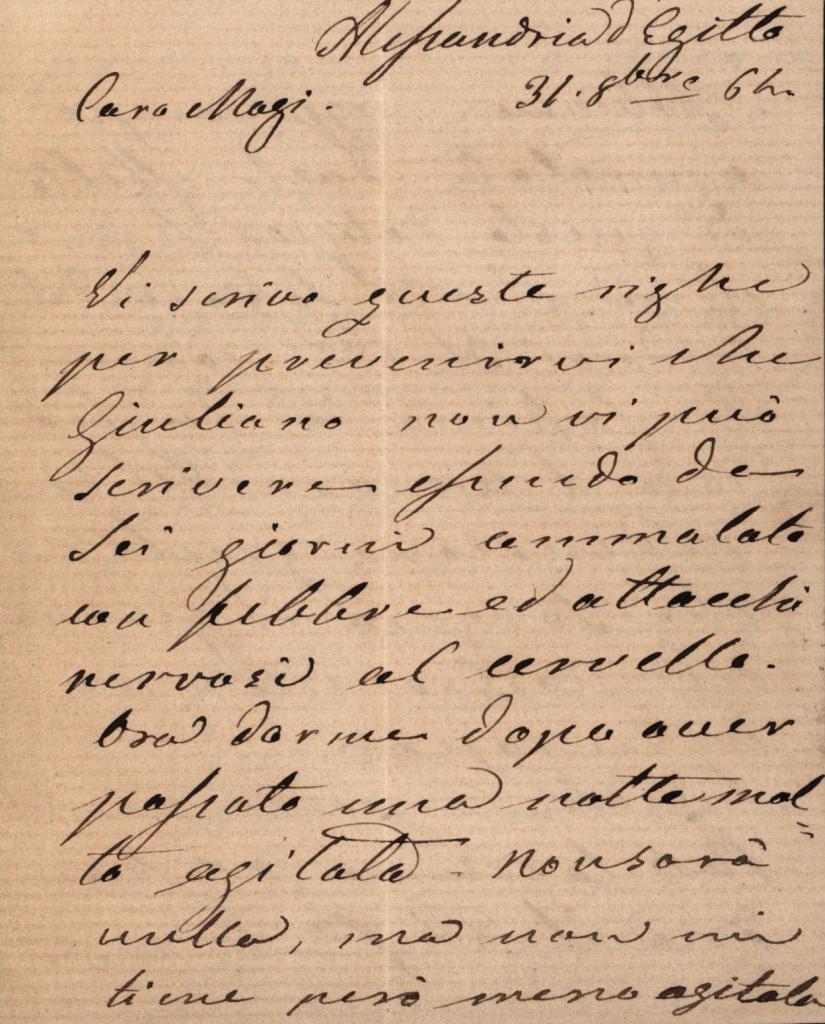 Alessandria d'Egitto
Caro Magi. 31. 8bre 64.
Vi scrivo queste righe
per prevenirvi che
Giuliano non vi può
scrivere essendo da
sei giorni ammalato
con febbre ed attacchi
nervosi al cervello.
Ora dorme dopo aver
passato una notte mol=
to agitata. Non sarà
nulla, ma non mi
tiene però meno agitata